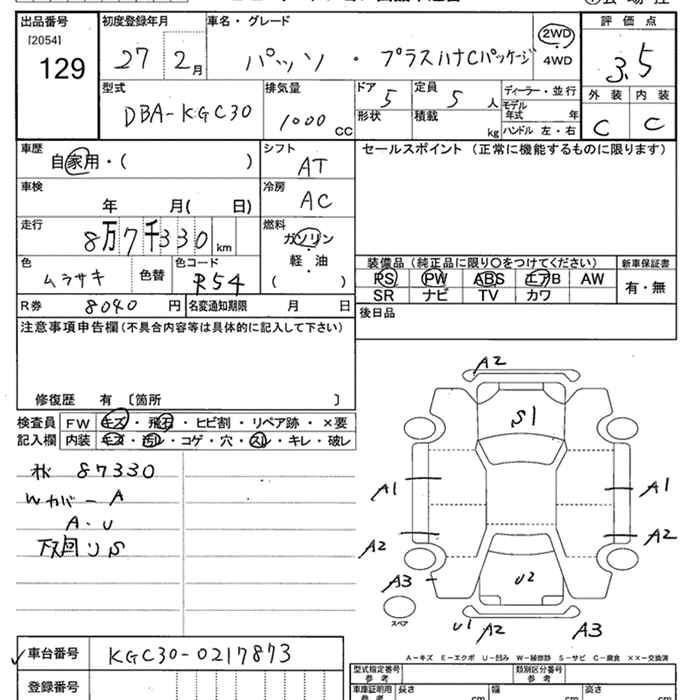 出品番号 初度登録年月 車名・グレード 評価点
[2054]
129 27 2月 パッソ ・ プラスハナCパッケージ 2WD ・ 4WD 3.5
型式 排気量 ドア 定員 ディーラー・並行 外装 内装
DBA-KGC30 1000 CC 5 5 人 モデル年式 年 C C
形状 積載 kg ハンドル 左・右
車歴 シフト セールスポイント (正常に機能するものに限ります)
自家用・( ) AT
車検 冷房
年 月( 日) AC
走行 燃料
8万7千330 km ガソリン ・ 軽油 ・ ( )
装備品 (純正品に限り〇をつけてください) 新車保証書
色 色替 色コード PS PW ABS エアB AW 有・無
ムラサキ R54 SR ナビ TV カワ
R券 8040 円 名変通知期限 月 日 後日品
注意事項申告欄(不具合内容等は具体的に記入して下さい)
修復歴 有 〔箇所 〕
検査員 FW キズ・飛石・ヒビ割・リペア跡・×要
記入欄 内装 キズ・汚レ・コゲ・穴・スレ・キレ・破レ
87330
Wカバー A
A・U
下回りS
A2
S1
A1 A1
A2 A2
A3 U2
スペア
U1 A2 A3
A-キズ E-エクボ U-凹み W-補修跡 S-サビ C-腐食 ××-交換済
車台番号 KGC30-0217873
型式指定番号 参考 類別区分番号 参考
登録番号 車庫証明用 参考 長さ cm 幅 cm 高さ cm